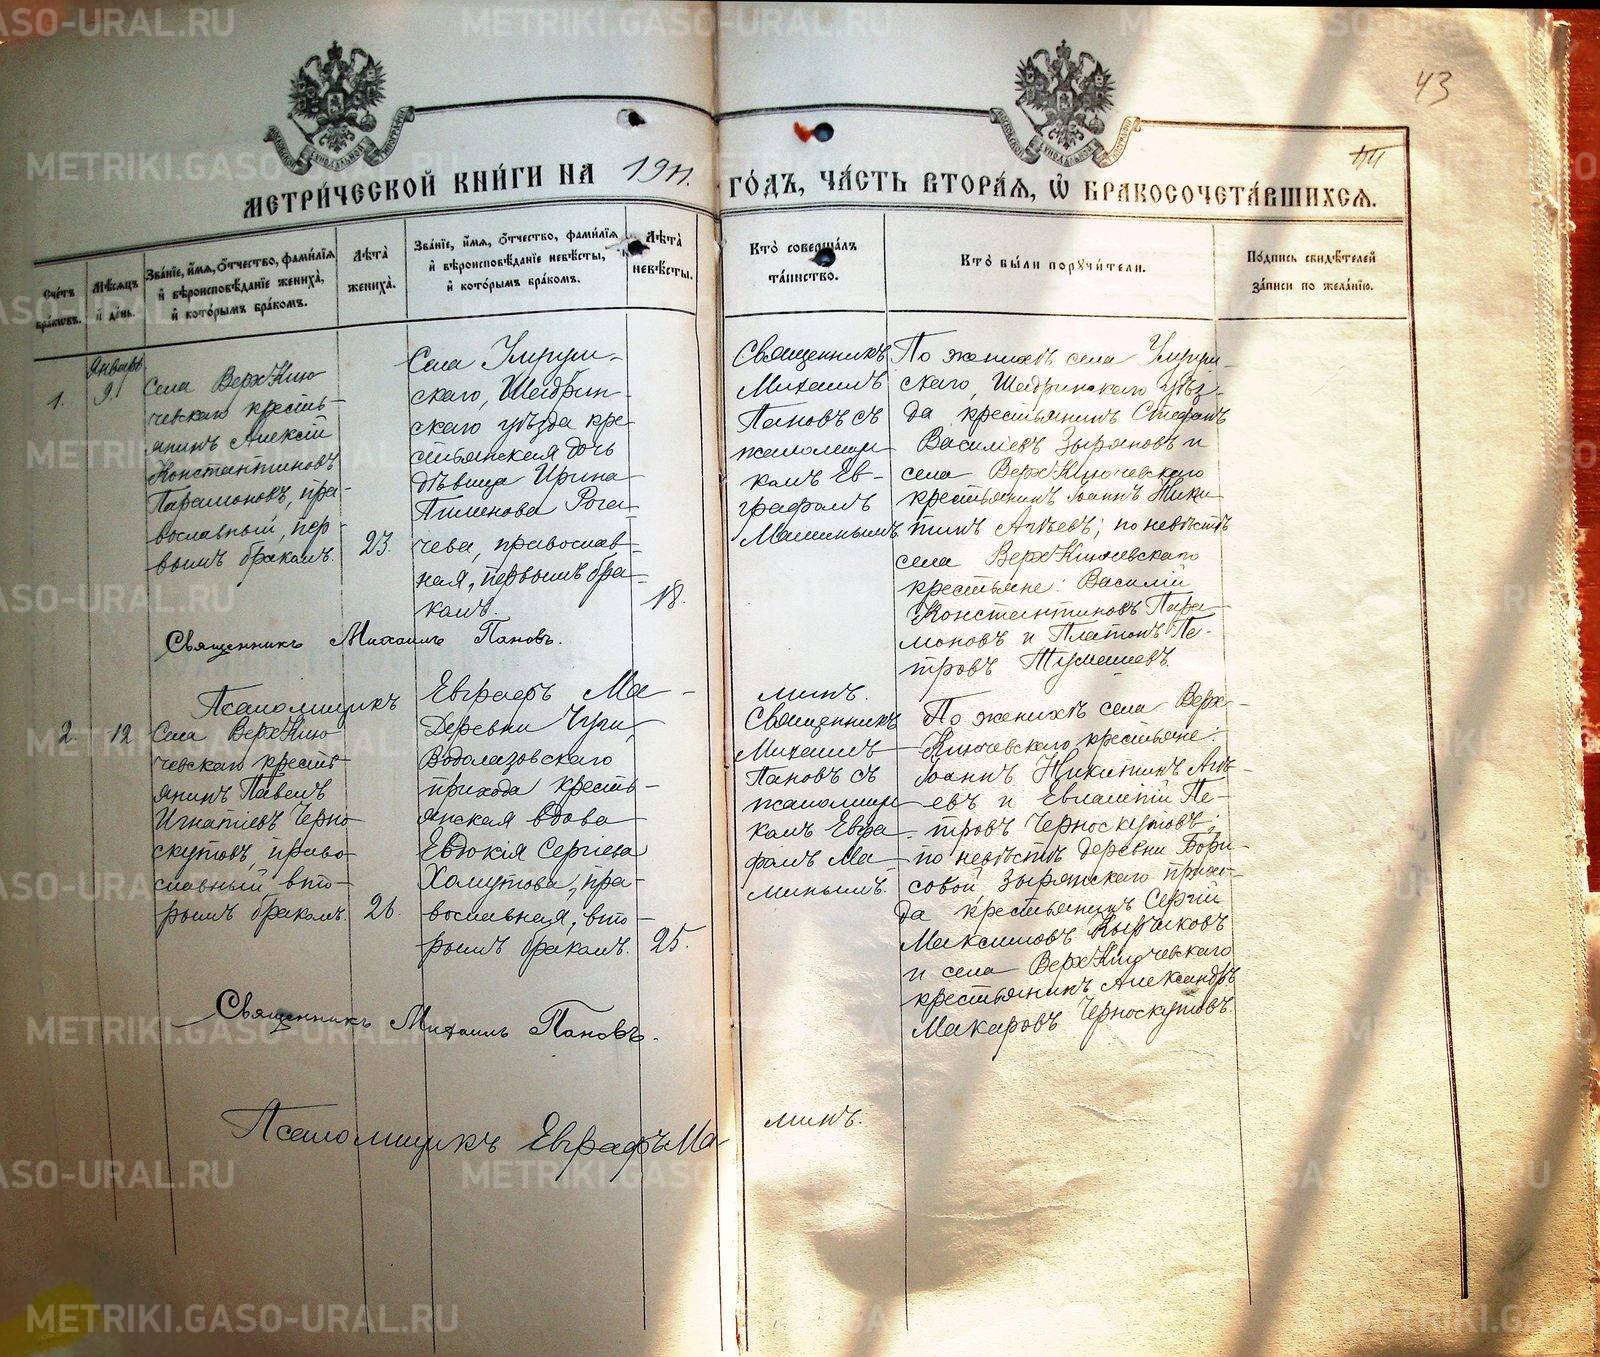 43
МЕТРИ́ЧЕСКОЙ КНИ́ГИ НА 1911. ГО́ДЪ, ЧА́СТЬ ВТОРА́Я, Ѡ҆ БРАКОСОЧЕТА́ВШИХСЯ.
Сче́тъ бра́ковъ.
Мѣ́сяцъ и҆ де́нь.
Зва́нїе, и҆́мя, ѻ҆́тчество, фами́лїя и҆ вѣроисповѣ́данїе жениха̀, и҆ кото́рымъ бра́комъ.
Лѣ́та жениха̀.
Зва́нїе, и҆́мя, ѻ҆́тчество, фами́лїя и҆ вѣроисповѣ́данїе невѣ́сты, и҆ кото́рымъ бра́комъ.
Лѣ́та невѣ́сты.
Кто̀ соверша́лъ та́инство.
Кто̀ бы́ли поручи́тели.
По́дпись свидѣ́телей за́писи по жела́нїю.
1.
Январь
9.
Села ВерхКлю
чевскаго кресть-
янинъ Алексій
Константиновъ
Парамоновъ, пра-
вославный, пер-
вымъ бракомъ.
23.
Села
скаго, Шадрин-
скаго уѣзда кре
стьянская дочь
дѣвица Ирина
Пименова Рога-
чева, православ-
ная, первымъ бра-
комъ.
18.
Священникъ
Михаилъ
Пановъ съ
псаломщи
комъ Ев-
графомъ
Маминымъ
По женихѣ села
скаго, Шадринскаго уѣз-
да крестьянинъ Стефанъ
Василіевъ Зыряновъ и
села ВерхКлючевскаго
крестьянинъ Іоаннъ Ники
тинъ Агѣевъ; по невѣстѣ
села ВерхКлючевскаго
крестьяне: Василій
Константиновъ Пара-
моновъ и Платонъ Пе-
тровъ Тумашевъ.
Священникъ Михаилъ Пановъ.
Псаломщикъ Евграфъ Ма-
минъ.
2.
12
Села ВерхКлю
чевскаго кресть-
янинъ Павелъ
Игнатіевъ Черно
скутовъ, право
славный, вто-
рымъ бракомъ.
26.
Деревни
Водолазовскаго
прихода кресть-
янская вдова
Евдокія Сергіева
Хомутова, пра-
вославная, вто-
рымъ бракомъ.
25.
Священникъ
Михаилъ
Пановъ съ
псаломщи
комъ Евгра
фомъ Ма
минымъ.
По женихѣ села Верх-
Ключевскаго крестьяне:
Іоаннъ Никитинъ Агѣ-
евъ и Евлампій Пе-
тровъ Черноскутовъ;
по невѣстѣ деревни Бори-
совой, Зырянскаго прихо-
да крестьянинъ Сергій
Максимовъ
и села ВерхКлючевскаго
крестьянинъ Александръ
Макаровъ Черноскутовъ.
Священникъ Михаилъ Пановъ.
Псаломщикъ Евграфъ Ма-
минъ.
METRIKI.GASO-URAL.RU